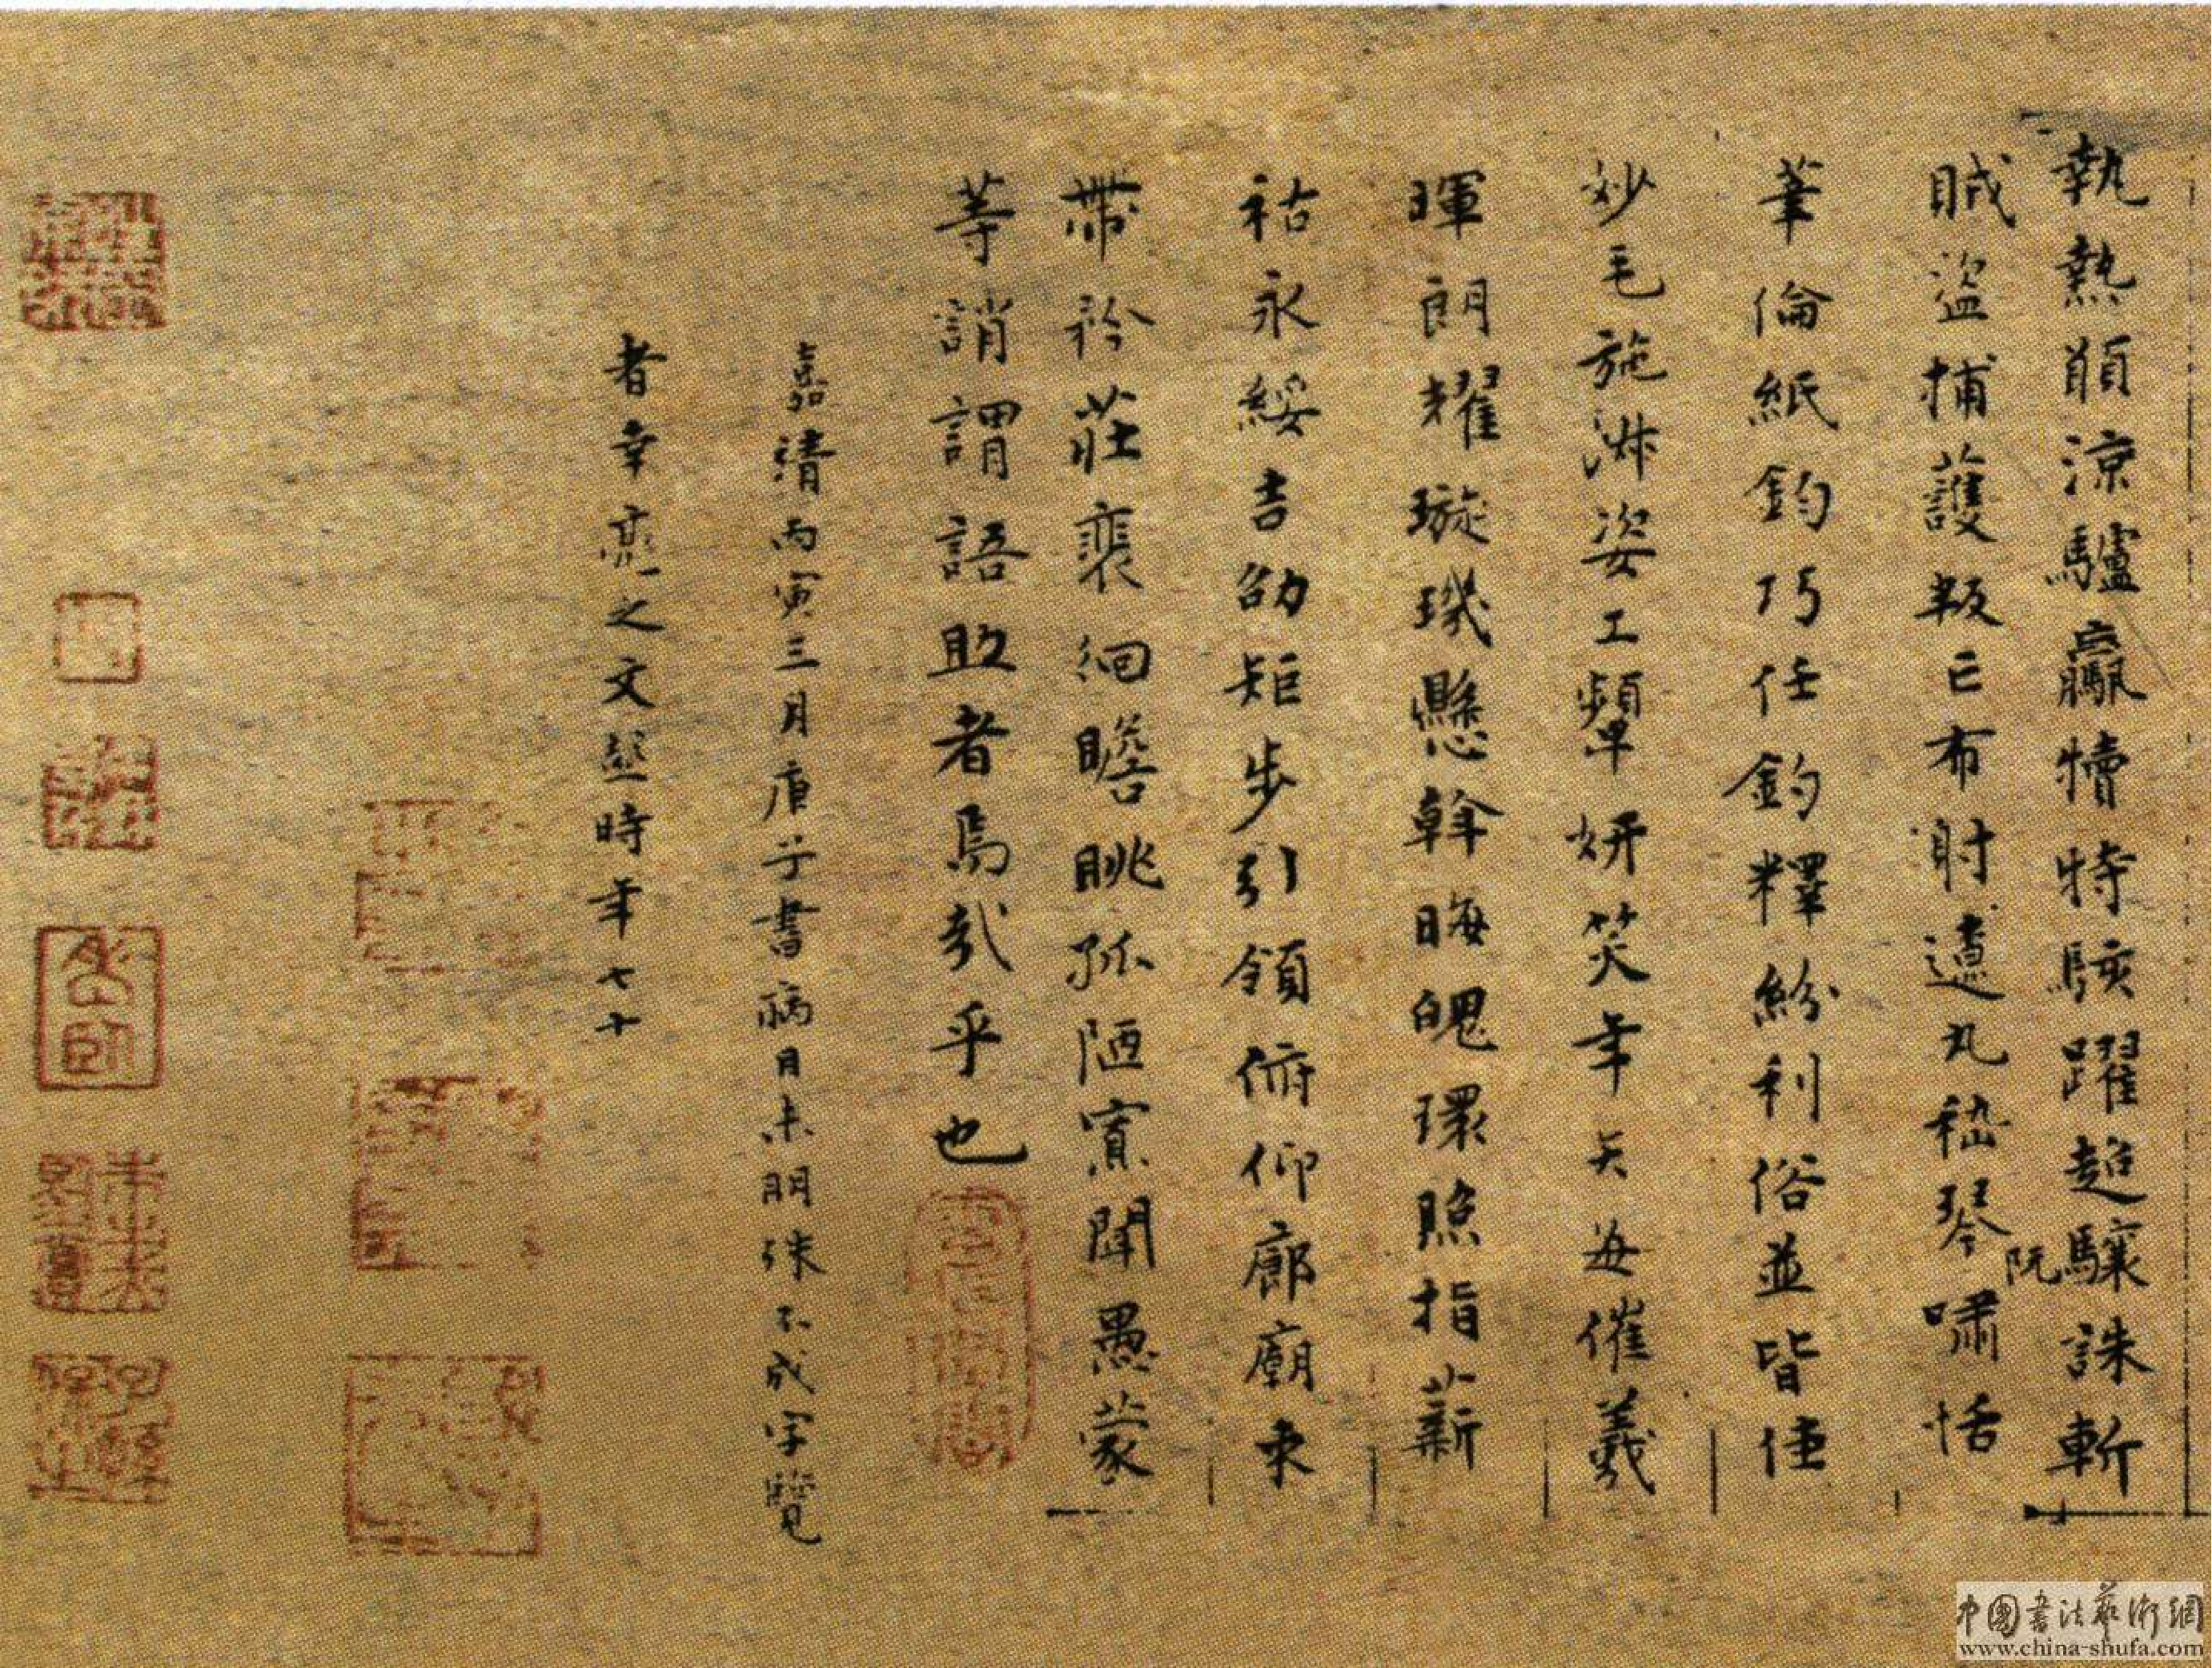 執熱願涼驢驘犢特駭躍超驤誅斬
賊盜捕護叛亡布射遼丸嵇琴阮嘯恬
筆倫紙鈞巧任釣釋紛利俗並皆佳
妙毛施淑姿工顰妍笑年矢每催羲
暉朗耀璇璣懸斡晦魄環照指薪
祜永綏吉劭矩步引領俯仰廊廟束
帶矜莊裴徊瞻眺孤陋寡聞愚蒙
等誚謂語助者焉哉乎也
嘉靖丙寅三月庚子書病目未明殊不成字覽
者幸亮之文彭時年七十
中國書法藝術網
www.china-shufa.com